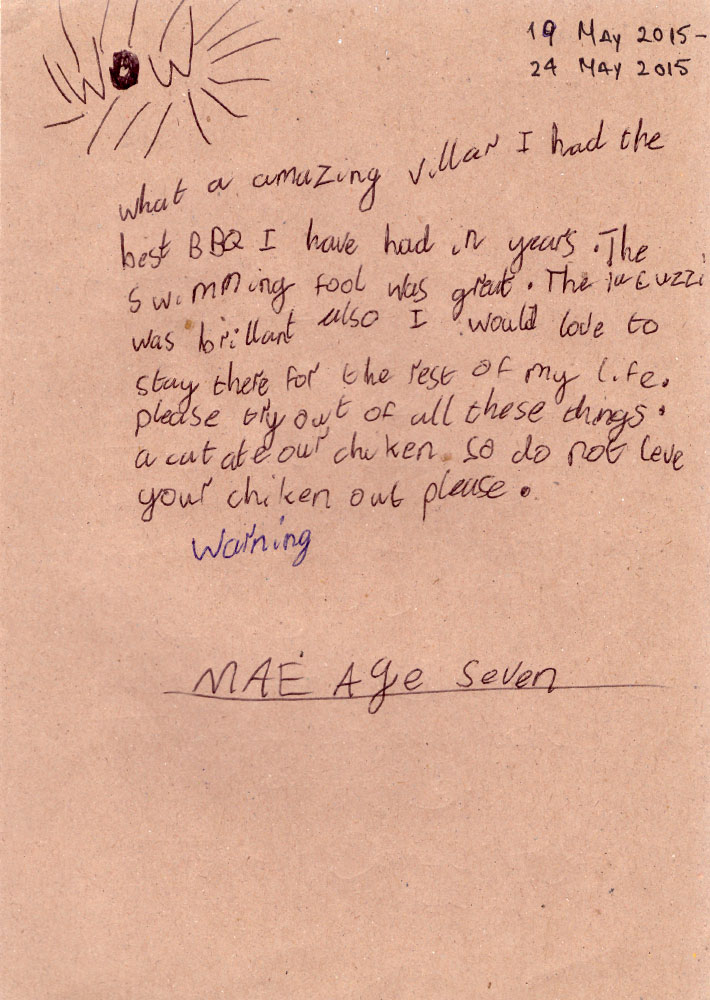 WOW
19 MAY 2015-
24 MAY 2015
what a amazing villar I had the
best BBQ I have had in years. The
swimming fool was great. The jacuzzi
was brillant also I would love to
stay there for the rest of my life.
please try out of all these things.
a cat ate our chiken so do not leve
your chiken out please.
Warning
MAE Age Seven